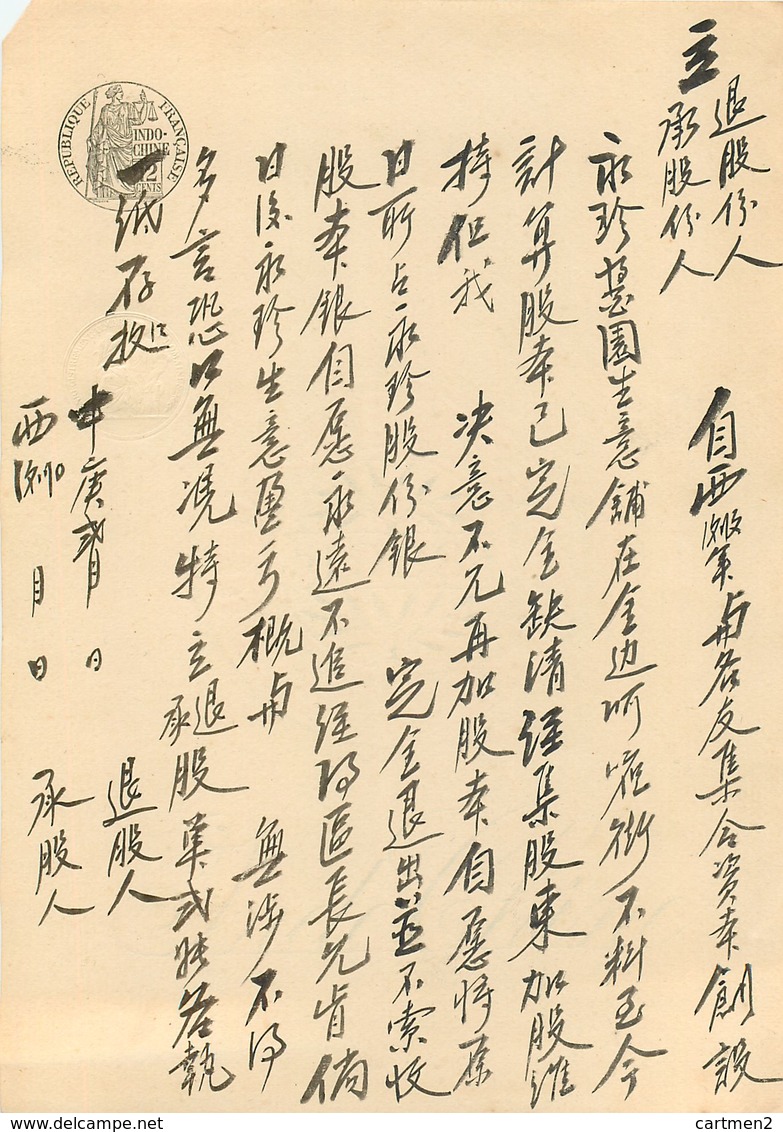 立 退股份人 承股份人 自西 年與各友集合資本創設
永珍 園生意舖在金边 街不料至今
計算股本已完全缺清經集股東加股維
持但我 决意不允再加股本自愿将原
日所占永珍股份銀 完全退出並不索收
股本銀自愿永遠不追經得區長允肯倘
日後永珍生意盈亏概與 無涉不得
多言恐口無凴特立退承股 弍 各執
一紙存 
中 庚 弍月 日
西 月 日
退股人
承股人
REPUBLIQUE FRANÇAISE
INDO-CHINE
12 CENTS
cartmen2